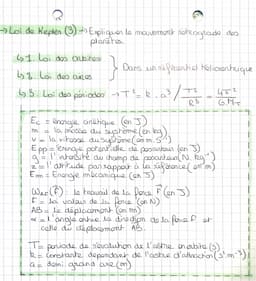 → Loi de Kepler (3) → Expliquer le mouvement héliocyclade des
planètes.
↳ 1. Loi des orbites
↳ 2. Loi des aires
} Dans un référentiel Héliocentrique
↳ 3. Loi des périodes → T² = k . a³ / T²/R³ = 4π²/G.M
Ec = énergie cinétique (en J)
m = la masse du système (en kg)
v = la vitesse du système (en m.s⁻¹)
Epp = énergie potentielle de pesanteur (en J)
g = l'intensité du champ de pesanteur (N.kg⁻¹)
z = l'altitude par rapport à la référence (en m)
Em = Énergie mécanique (en J)
WAB(F) = le travail de la force F (en J)
F = la valeur de la force (en N)
AB = le déplacement (en m)
α = l'angle entre la direction de la force F et
celle du déplacement AB.
T = période de révolution de l'astre en orbite (s)
k = constante dépendant de l'astre d'attraction (s².m⁻³)
a = demi grand axe (m)